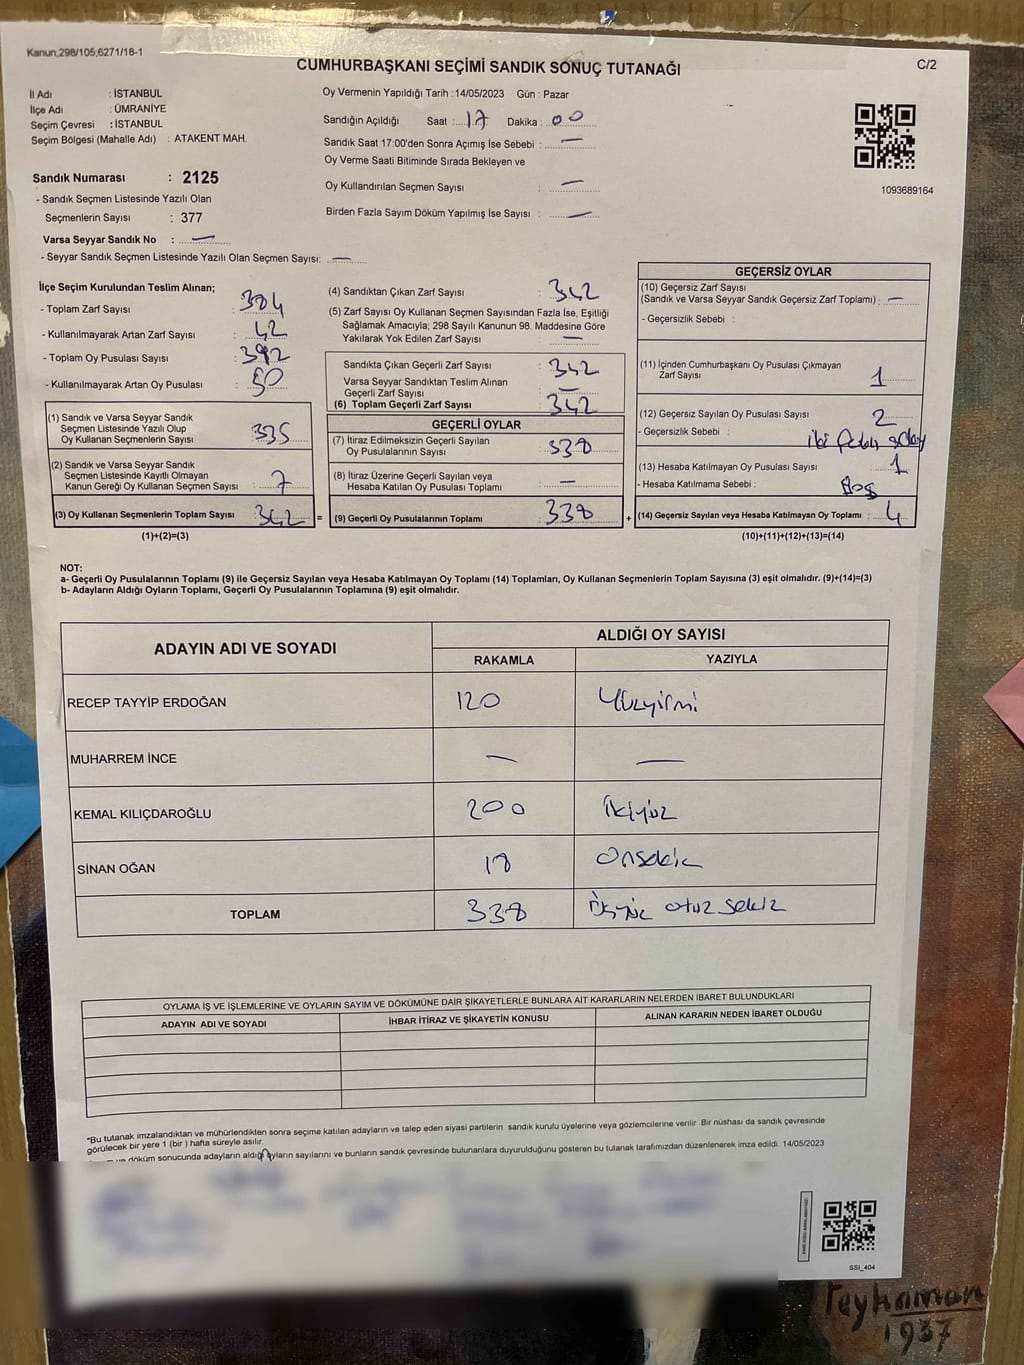 Kanun;298/105;6271/18-1
CUMHURBAŞKANI SEÇİMİ SANDIK SONUÇ TUTANAĞI
C/2
İl Adı : İSTANBUL
İlçe Adı : ÜMRANİYE
Seçim Çevresi : İSTANBUL
Seçim Bölgesi (Mahalle Adı) : ATAKENT MAH.
Sandık Numarası : 2125
- Sandık Seçmen Listesinde Yazılı Olan
Seçmenlerin Sayısı : 377
Varsa Seyyar Sandık No : —
- Seyyar Sandık Seçmen Listesinde Yazılı Olan Seçmen Sayısı: —
Oy Vermenin Yapıldığı Tarih : 14/05/2023 Gün : Pazar
Sandığın Açıldığı Saat : 17 Dakika : 00
Sandık Saat 17:00'den Sonra Açımış İse Sebebi : —
Oy Verme Saati Bitiminde Sırada Bekleyen ve
Oy Kullandırılan Seçmen Sayısı : —
Birden Fazla Sayım Döküm Yapılmış İse Sayısı : —
1093689164
İlçe Seçim Kurulundan Teslim Alınan;
- Toplam Zarf Sayısı : 384
- Kullanılmayarak Artan Zarf Sayısı : 42
- Toplam Oy Pusulası Sayısı : 392
- Kullanılmayarak Artan Oy Pusulası : 50
(1) Sandık ve Varsa Seyyar Sandık
Seçmen Listesinde Yazılı Olup
Oy Kullanan Seçmenlerin Sayısı : 335
(2) Sandık ve Varsa Seyyar Sandık
Seçmen Listesinde Kayıtlı Olmayan
Kanun Gereği Oy Kullanan Seçmen Sayısı : 7
(3) Oy Kullanan Seçmenlerin Toplam Sayısı : 342 =
(1)+(2)=(3)
(4) Sandıktan Çıkan Zarf Sayısı : 342
(5) Zarf Sayısı Oy Kullanan Seçmen Sayısından Fazla İse, Eşitliği
Sağlamak Amacıyla; 298 Sayılı Kanunun 98. Maddesine Göre
Yakılarak Yok Edilen Zarf Sayısı : —
Sandıkta Çıkan Geçerli Zarf Sayısı : 342
Varsa Seyyar Sandıktan Teslim Alınan
Geçerli Zarf Sayısı : —
(6) Toplam Geçerli Zarf Sayısı : 342
GEÇERLİ OYLAR
(7) İtiraz Edilmeksizin Geçerli Sayılan
Oy Pusulalarının Sayısı : 338
(8) İtiraz Üzerine Geçerli Sayılan veya
Hesaba Katılan Oy Pusulası Toplamı : —
(9) Geçerli Oy Pusulalarının Toplamı : 338 +
GEÇERSİZ OYLAR
(10) Geçersiz Zarf Sayısı
(Sandık ve Varsa Seyyar Sandık Geçersiz Zarf Toplamı) : —
- Geçersizlik Sebebi :
(11) İçinden Cumhurbaşkanı Oy Pusulası Çıkmayan
Zarf Sayısı : 1
(12) Geçersiz Sayılan Oy Pusulası Sayısı : 2
- Geçersizlik Sebebi :
(13) Hesaba Katılmayan Oy Pusulası Sayısı : 1
- Hesaba Katılmama Sebebi : Boş
(14) Geçersiz Sayılan veya Hesaba Katılmayan Oy Toplamı : 4
(10)+(11)+(12)+(13)=(14)
NOT:
a- Geçerli Oy Pusulalarının Toplamı (9) ile Geçersiz Sayılan veya Hesaba Katılmayan Oy Toplamı (14) Toplamları, Oy Kullanan Seçmenlerin Toplam Sayısına (3) eşit olmalıdır. (9)+(14)=(3)
b- Adayların Aldığı Oyların Toplamı, Geçerli Oy Pusulalarının Toplamına (9) eşit olmalıdır.
ADAYIN ADI VE SOYADI
ALDIĞI OY SAYISI
RAKAMLA YAZIYLA
RECEP TAYYİP ERDOĞAN 120 Yüzyirmi
MUHARREM İNCE — —
KEMAL KILIÇDAROĞLU 200 İkiyüz
SİNAN OĞAN 18 Onsekiz
TOPLAM 338 Üçyüz otuz sekiz
OYLAMA İŞ VE İŞLEMLERİNE VE OYLARIN SAYIM VE DÖKÜMÜNE DAİR ŞİKAYETLERLE BUNLARA AİT KARARLARIN NELERDEN İBARET BULUNDUKLARI
ADAYIN ADI VE SOYADI İHBAR İTİRAZ VE ŞİKAYETİN KONUSU ALINAN KARARIN NEDEN İBARET OLDUĞU
*Bu tutanak imzalandıktan ve mühürlendikten sonra seçime katılan adayların ve talep eden siyasi partilerin sandık kurulu üyelerine veya gözlemcilerine verilir. Bir nüshası da sandık çevresinde
görülecek bir yere 1 (bir ) hafta süreyle asılır.
ve döküm sonucunda adayların aldığı oyların sayılarını ve bunların sandık çevresinde bulunanlara duyurulduğunu gösteren bu tutanak tarafımızdan düzenlenerek imza edildi. 14/05/2023
GSI_404
Feyhaman
1937